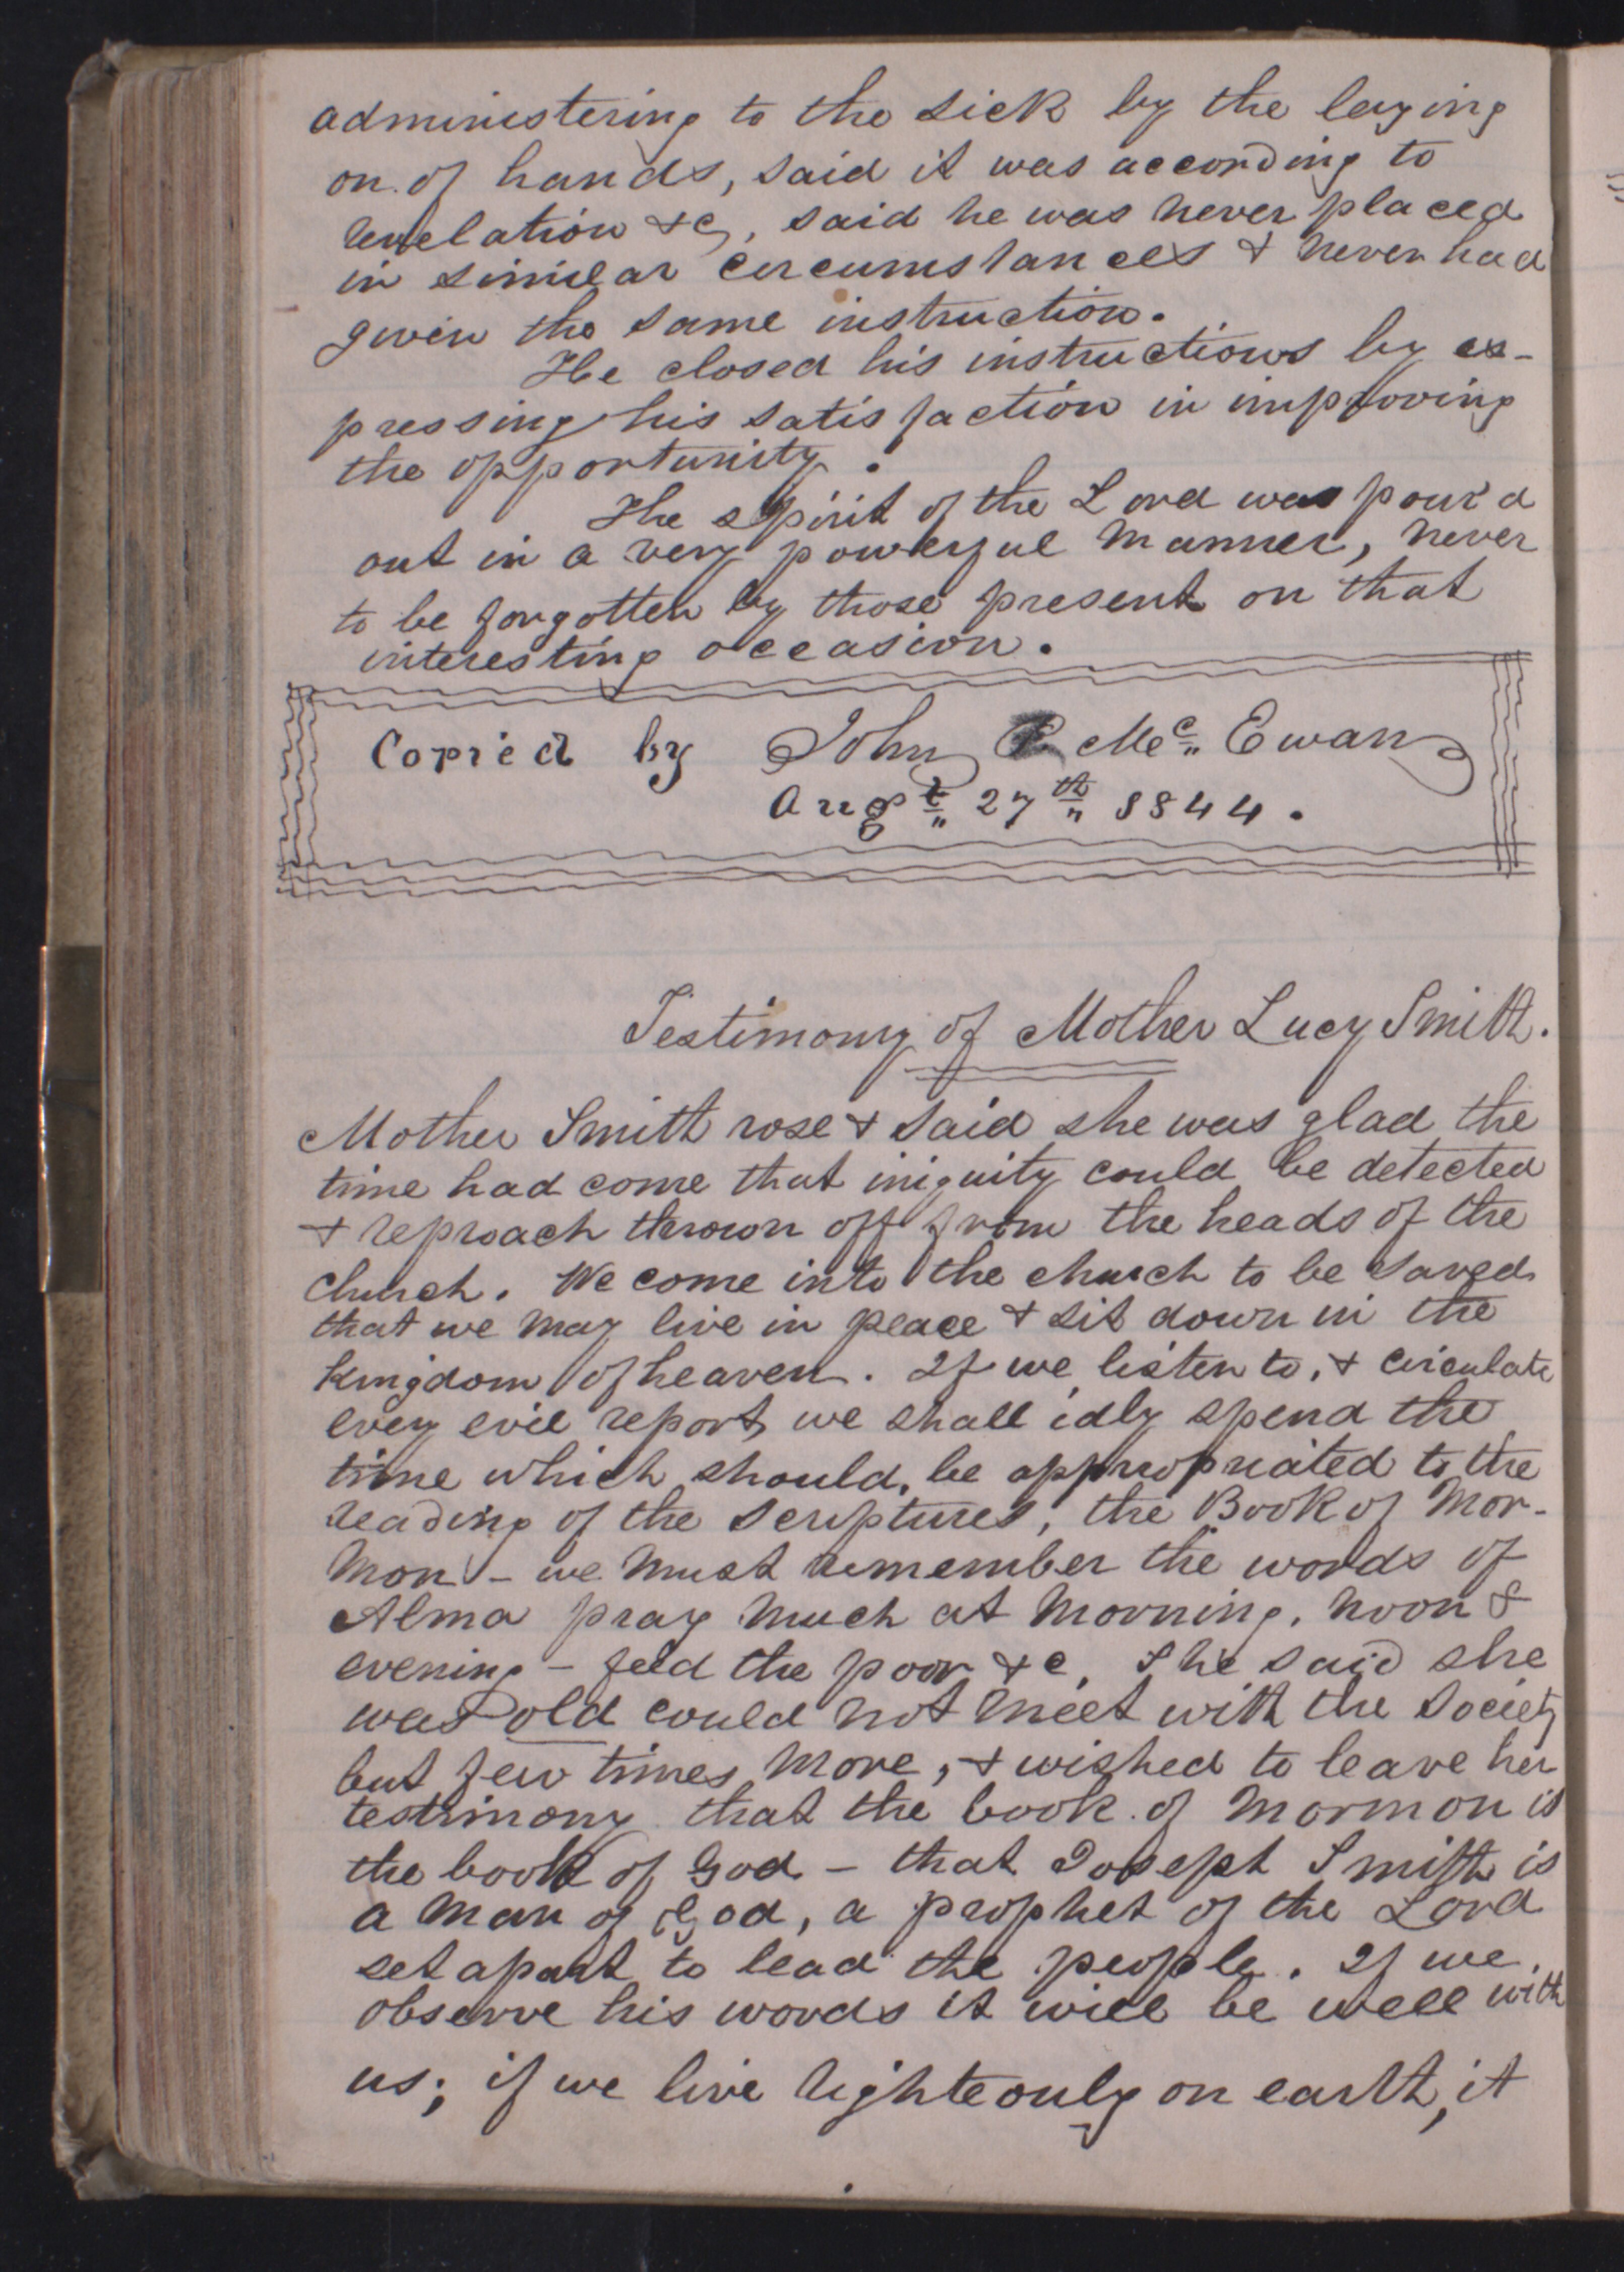 administering to the sick by the laying
on of hands, said it was according to
revelation &c, said he was never placed
in similar circumstances & never had
given the same instruction.
He closed his instructions by ex-
pressing his satisfaction in improving
the opportunity.
The spirit of the Lord was pour'd
out in a very powerful manner, never
to be forgotten by those present on that
interesting occasion.
Copied by John Mc Ewan
Augt 27th 1844.
Testimony of Mother Lucy Smith.
Mother Smith rose & said she was glad the
time had come that iniquity could be detected
& reproach thrown off from the heads of the
Church. We come into the church to be saved
that we may live in peace & sit down in the
kingdom of heaven. If we listen to, & circulate
every evil report we shall idly spend the
time which should, be appropriated to the
reading of the scriptures, the Book of Mor-
mon - we must remember the words of
Alma pray much at morning, noon &
evening - feed the poor &c. She said she
was old could not meet with the Society
but few times more, & wished to leave her
testimony that the book of Mormon is
the book of God - that Joseph Smith is
a man of God, a prophet of the Lord
set apart to lead the people. If we
observe his words it will be well with
us; if we live righteouly on earth, it